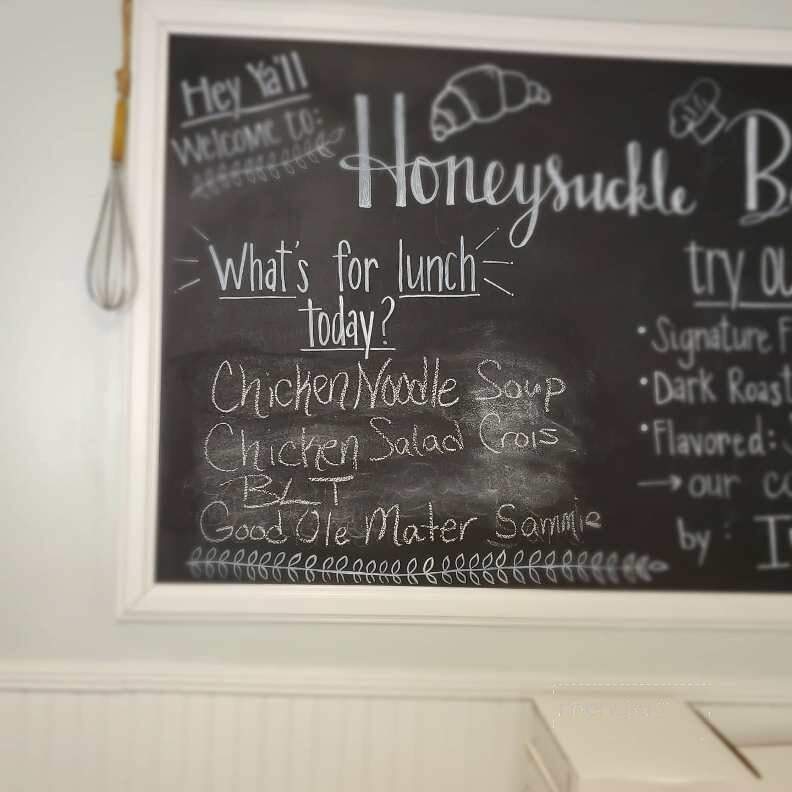 Hey Ya'll
Welcome to:
Honeysuckle B
What's for lunch
today?
Chicken Noodle Soup
Chicken Salad Crois
BLT
Good Ole Mater Sammie
try ou
• Signature F
• Dark Roast
• Flavored:
→ our co
by: I